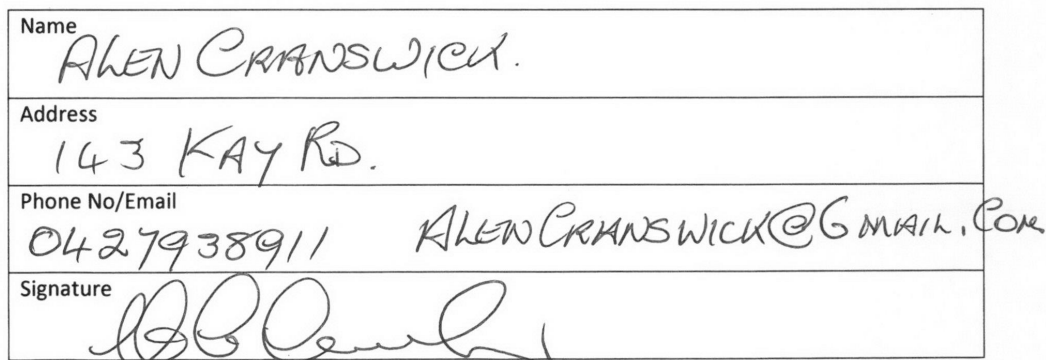 Name
ALEN CRANSWICK.
Address
143 KAY RD.
Phone No/Email
0427938911 ALENCRANSWICK@GMAIL.COM
Signature